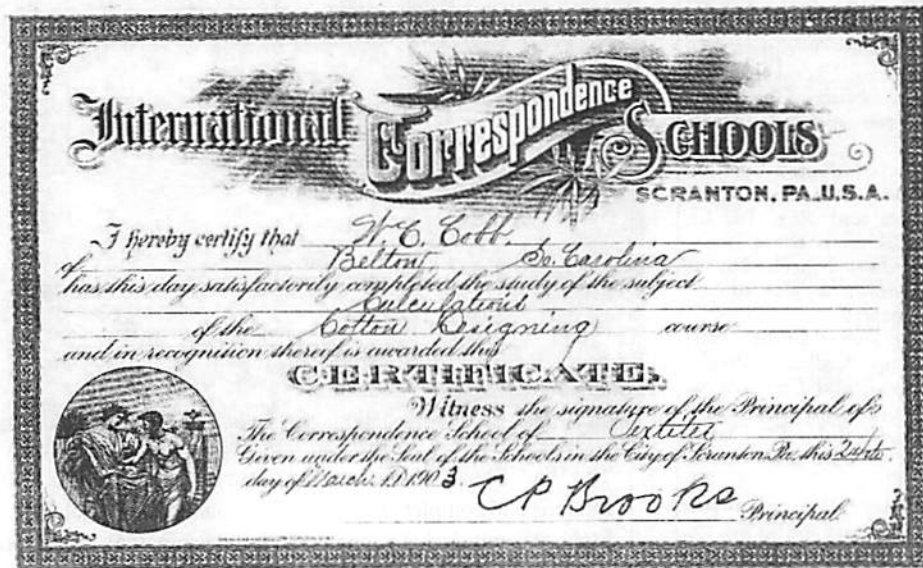 International Correspondence Schools
SCRANTON, PA., U.S.A.
I hereby certify that W. C. Cobb.
of Belton, So. Carolina
has this day satisfactorily completed the study of the subject
Calculations
of the Cotton Designing course
and in recognition thereof is awarded this
CERTIFICATE.
Witness the signature of the Principal of
The Correspondence School of
Given under the Seal of the Schools in the City of Scranton, Pa., this 24th
day of March A.D. 1903.
C P Brooks
Principal.